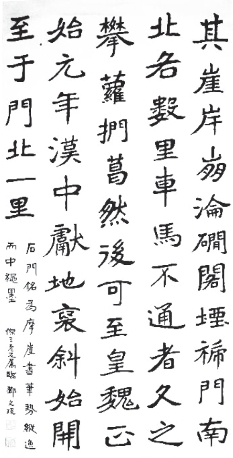 其崖岸崩淪磵閣堙褫門南
北各數里車馬不通者久之
攀蘿捫葛然後可至皇魏正
始元年漢中獻地裒斜始開
至于門北一里
石門銘為摩崖書筆勢縱逸
而中繩墨